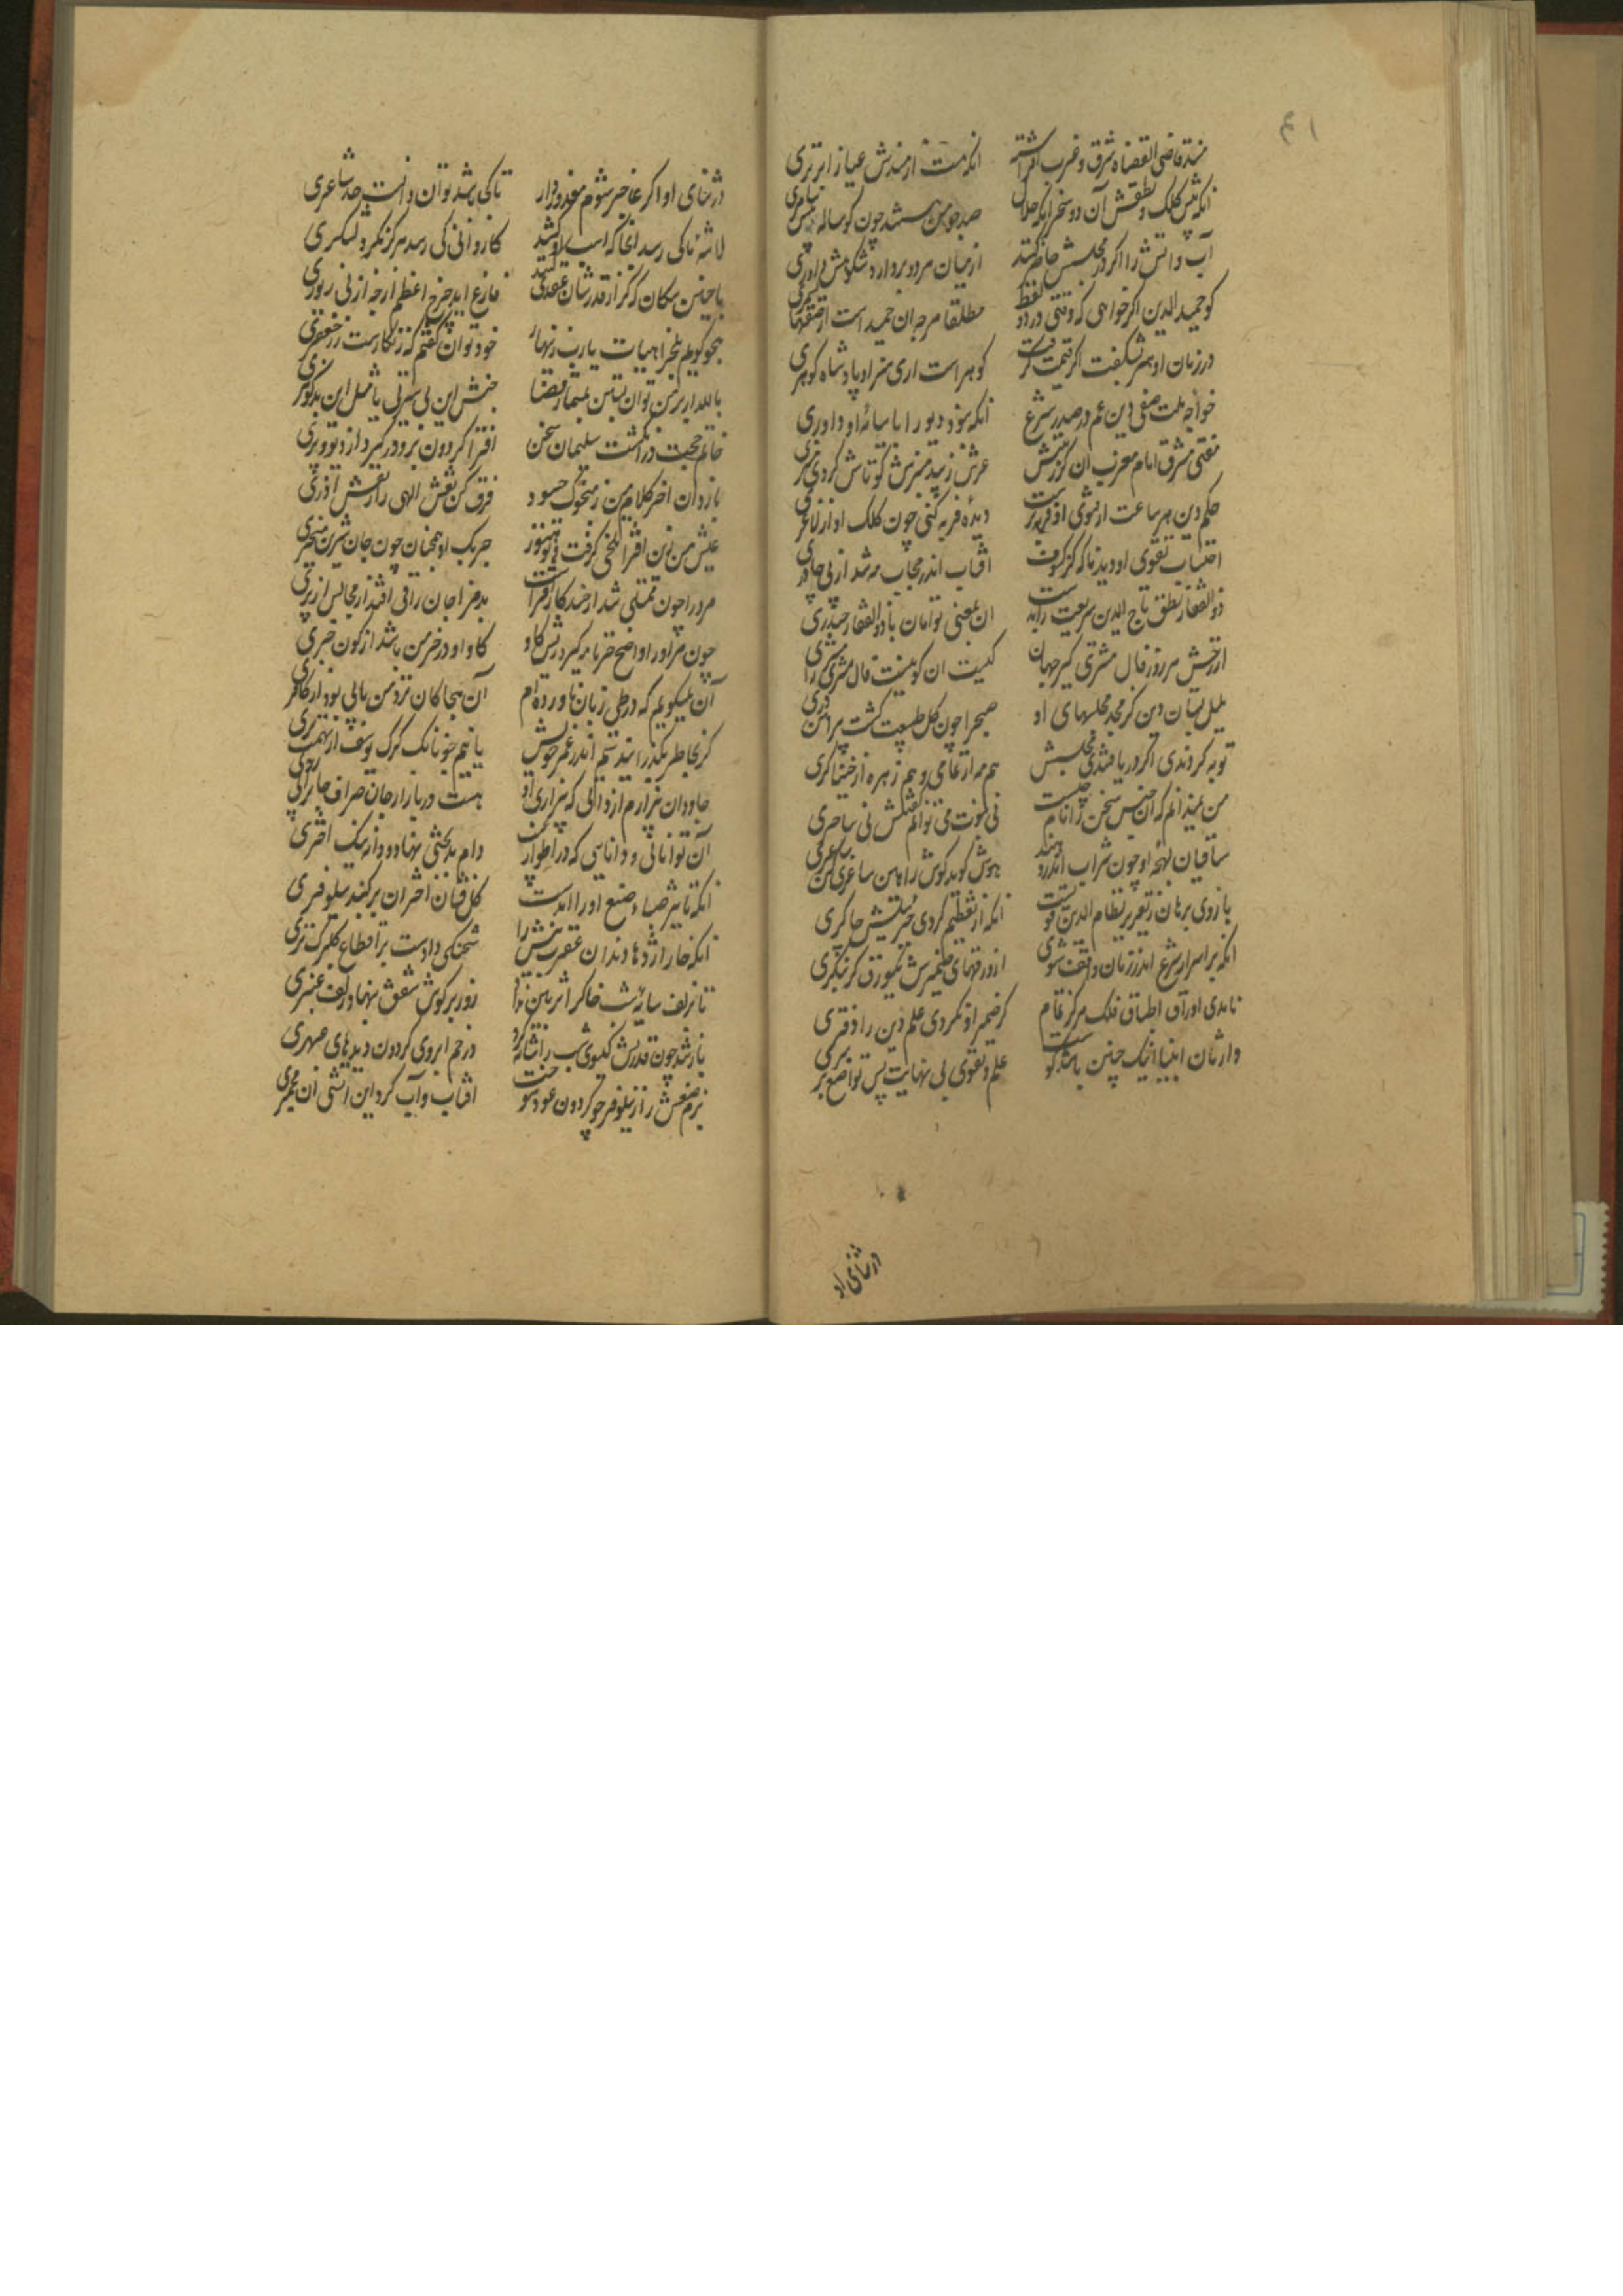 ۴۱
مسند قاضی القضاة شرق و غرب افراشته
انکه هست از مسندش عباسیان را برتری
انکه پیش کلک و نطقش آن دو سحر انکه حلال
صد چو من هستند چون کوساله پیش سامری
آب و اتش را اکر در مجلسش حاضر کنند
از میان هر دو بردارد شکوهش داوری
کو حمید الدین اکر خواهی که وقتی در دو لفظ
مطلقا هر چه ان حمید است از صفتها بشمری
در زمان او هنر نشکفت اکر قیمت کرفت
کوهر است اری هنر او پادشاه کوهری
خواجه ملت صفی دین عمر در صدر شرع
انکه نبود دیو را با سایه او داوری
مفتی مشرق امام مغرب ان کز رتبتش
عرش زیبد منبرش کو تاش کردی منبری
حکم دین هر ساعت از فتوی او فربه‌تر است
دیده فربه کنی چون کلک او از لاغری
احتساب تقوی او دید ناکه کز کسوف
آفتاب اندر حجاب مه شد از بی چادری
ذوالفقار نطق تاج الدین شریعت را بدست
ان بمعنی توأمان با ذوالفقار حیدری
از رخش هر روز فال مشتری کیرد جهان
کیست ان کو نیست فال مشتری را مشتری
بلبل بستان دین کز مجد مجلسهای او
صبحرا چون کل طبیعت کشت پیراهن دری
توبه کردندی اکر دریافتندی مجلسش
هم مه از نمامی و هم زهره از خنیاکری
من نمیدانم که این جنس سخن را نام چیست
نی نبوت می توانم کفتنش نی ساحری
ساقیان لهجه او چون شراب اندر دهند
هوش کوید کوش را هین ساغری کن ساغری
بازوی برهان ز تقریر نظام الدین قویست
انکه از تعظیم کردی جبرئیلش چاکری
انکه بر اسرار شرع اندر زمان واقف شوی
از ورقهای ضمیرش یکورق کر بنکری
نامدی اوراق اطباق فلک هرکز تمام
کر ضمیر او نکردی علم دین را دفتری
وارثان انبیا اینک چنین باشند کو
علم و تقوی بی نهایت پس تواضع بر سری
در ثنای او
در ثنای او اکر عاجز شوم معذور دار
تا کی باشد توان دانست حد شاعری
لاشه ما کی رسد انجا که اسب او کشد
کاروانی کی رسد هرکز بکرد لشکری
با چنین سکان که کر از قدرشان عقدی کنند
فارغ اید چرخ اعظم از چه از بی زیوری
هجو کویم بلخ را هیهات یارب زینهار
خود توان کفتن که زنکارست زر جعفری
بالله ار بر من توان بستن بمسمار قضا
جنس این بی سیرتی یا مثل این بدکوهری
خاتم حجت در انکشت سلیمان سخن
افترا کردن برو در کیرد از دیو و پری
باز دان اخر کلام من ز منحول حسود
فرق کن نقش الهی را ز نقش آذری
عیش من زین افترا تلخی کرفت و تو هنوز
چربک او همچنان چون جان شیرین میخری
مرد را چون ممتلی شد از حسد کار افتراست
بد مزاجان را قی افتد از مجالس از پری
چون مرا او را واضح خر نامه کیرد ریش کاو
کاو او در خرمن من باشد از کون خری
آن نمیکویم که در طی زبان ناورده‌ام
آن هجا کان نزد من بابی بود از کافری
کز بخاطر بکذرانیدستم اندر عمر خویش
یا نیم چونانک کرک یوسف از تهمت بری
جاودان بیزارم از ذاتی که بیزاری او
هست در بازار جان صراف جانرا بی زری
آن توانائی و دانائی که در اطوار غیب
دام بدبختی نهاد و دانه نیک اختری
انکه تأثیر صباء صنع او را امدست
کل فشان اختران بر کنبد نیلوفری
انکه خار اژدها دندان عقرب نیش را
شحنکی دادست بر اقطاع کلبرک تری
تا بزلف سایه شب خاکرا تزیین نداد
روز بر کوش شفق ننهاد زلف عنبری
باز شد چون قدرتش کیسوی شب را شانه کرد
در خم ابروی کردون دیدهای عبهری
بزم صنعش را ز نیلوفر چو کردون عود سوخت
آفتاب و آب کرد این آتشی ان مجمری